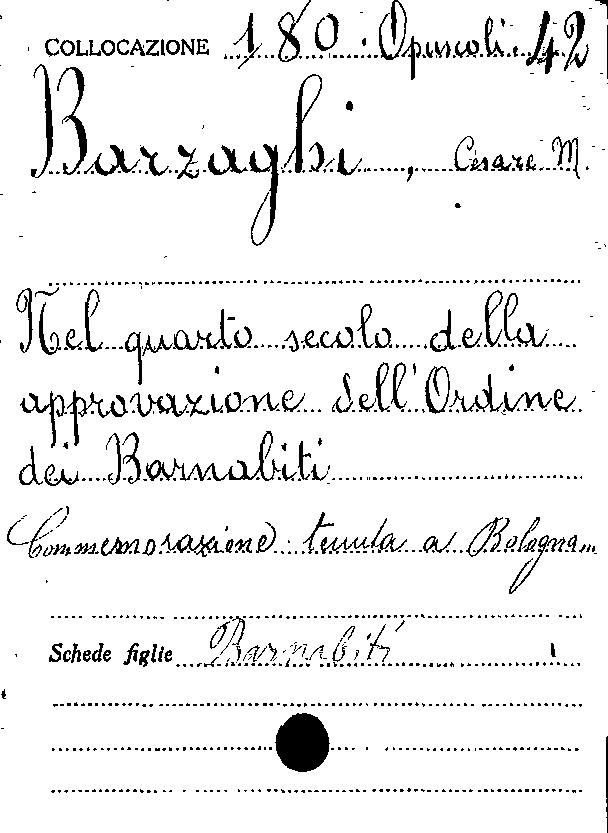 COLLOCAZIONE 180. Opuscoli. 42
Barzaghi, Cesare M.
Nel quarto secolo della
approvazione dell'Ordine
dei Barnabiti
Commemorazione tenuta a Bologna
Schede figlie Barnabiti